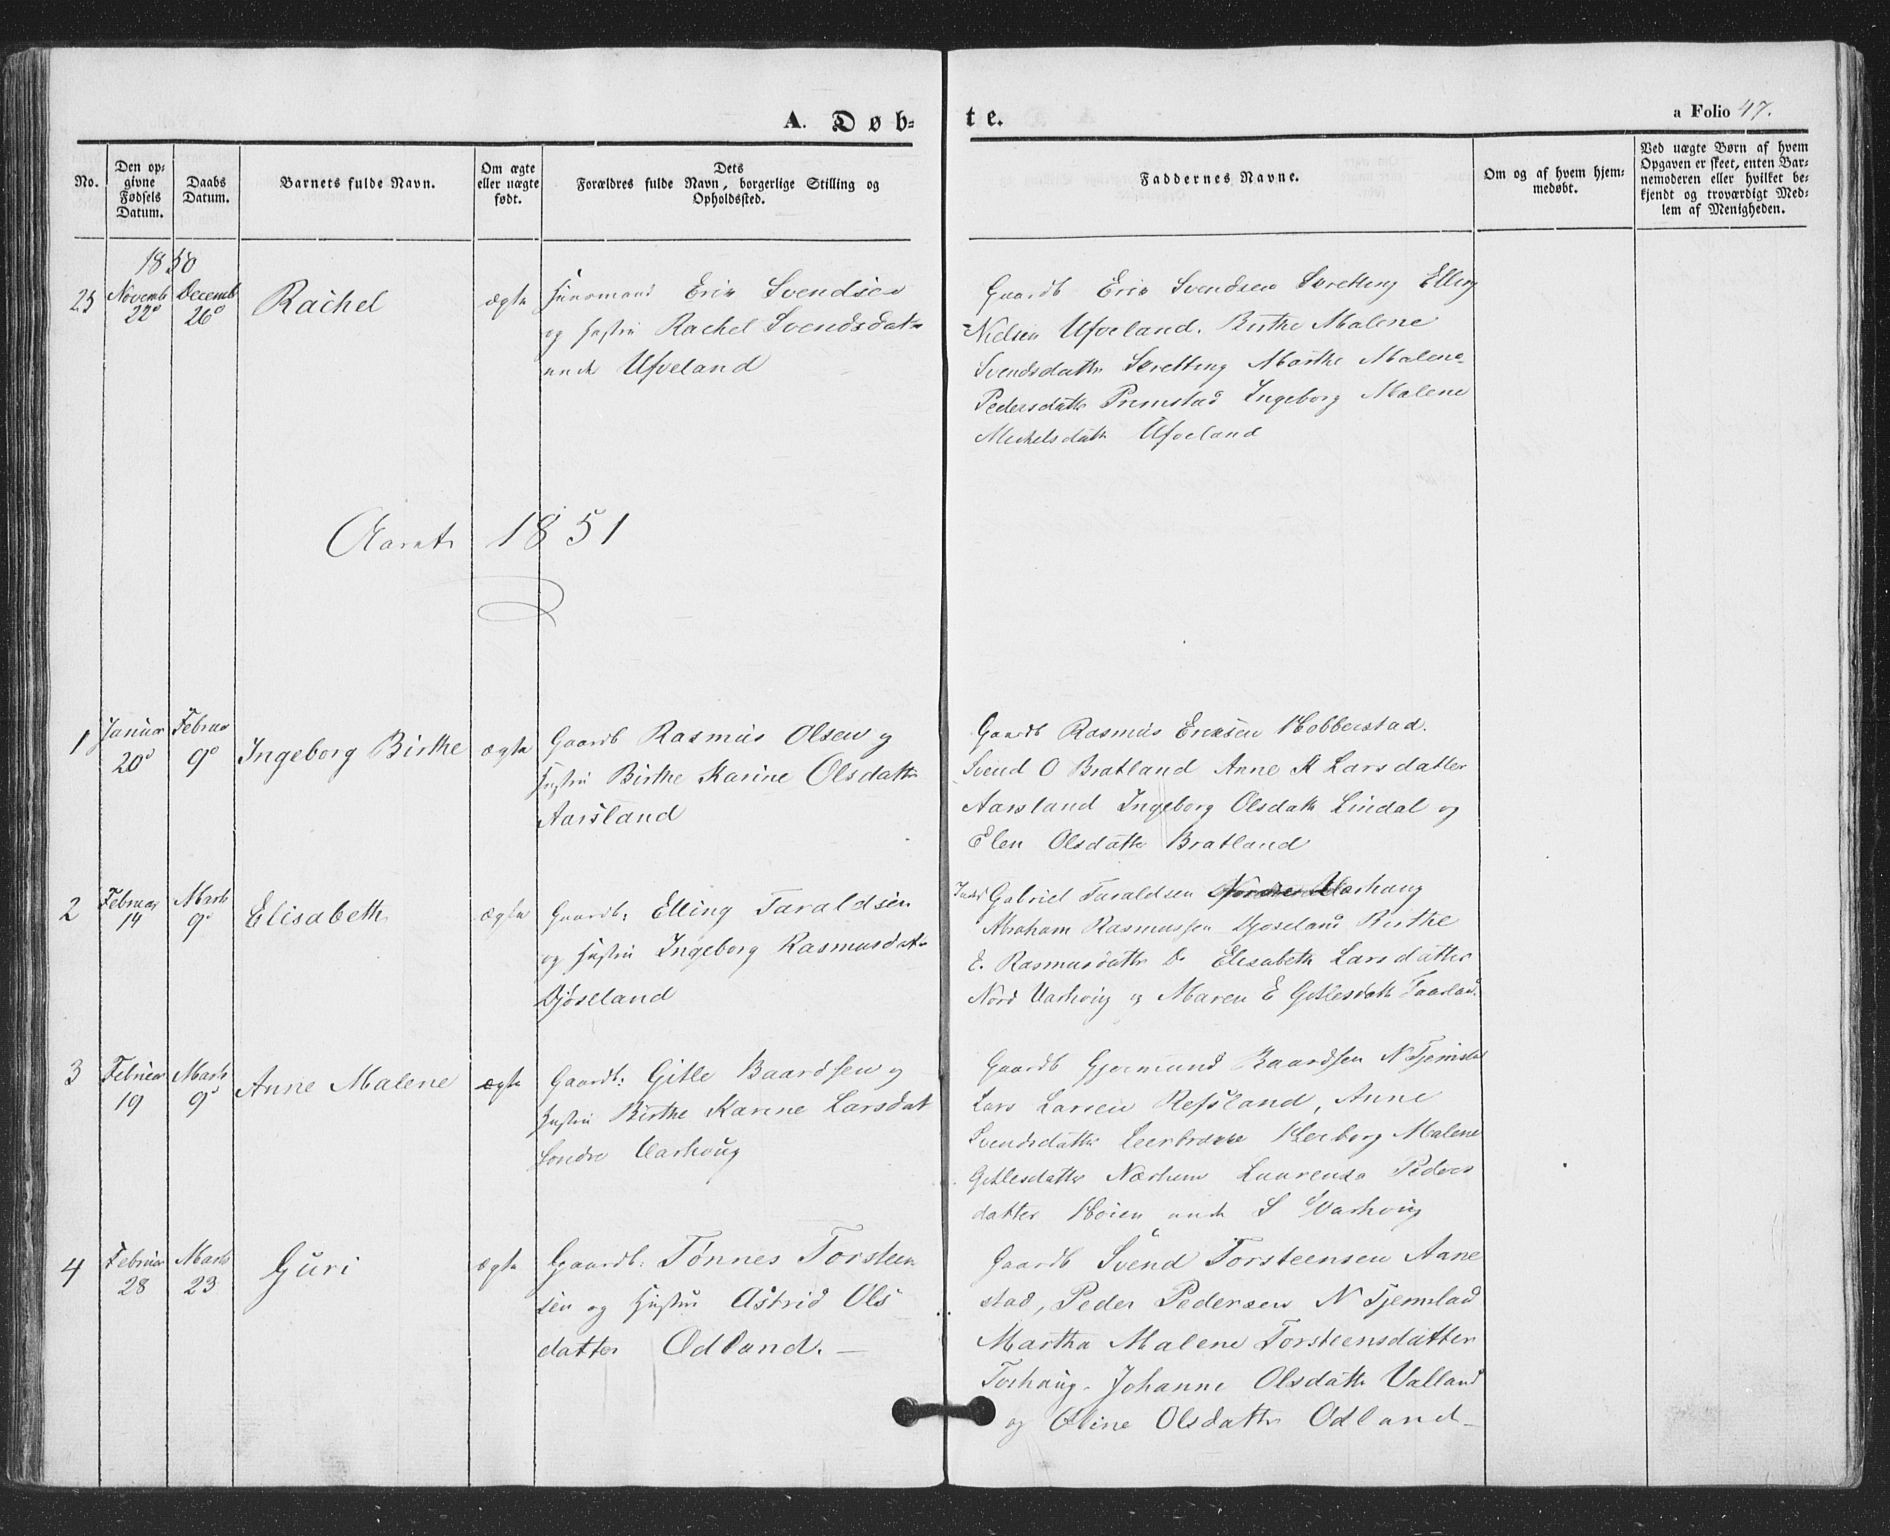 A. Døb=
te.
a Folio 47.
No.
Den op=
givne
Fødsels
Datum.
Daabs
Datum.
Barnets fulde Navn.
Om ægte
eller uægte
født.
Dets
Forældres fulde Navn, borgerlige Stilling og
Opholdssted.
Faddernes Navne.
Om og af hvem hjem=
medøbt.
Ved uægte Børn af hvem
Opgaven er skeet, enten Bar=
nemoderen eller hvilket be=
kjendt og troværdigt Med=
lem af Menigheden.
1850
25
Novemb
22
Decemb
26
Rachel
ægte
Huusmand Eric Svendsen
og Hustru Rachel Svendsdat
Ufveland
Gaardb Eric Svendsen Elling
Nielsen Ufveland. Birthe Malene
Svendsdatter Marthe Malene
Pedersdatter Ingeborg Malene
Ufveland
Aaret 1851
1
Januar
20
Februar
9
Ingeborg Birthe
ægte
Gaardb Rasmus Olsen og
Hustru Birthe Karine Olsdatter
Aarsland
Gaardb Rasmus Ericsen Hobberstad.
Svend O Bratland Anne K Larsdatter
Aarsland Ingeborg Olsdatt Lindal og
Elen Olsdatter Bratland
2
Februar
14
Marts
9
Elisabeth
ægte
Gaardb: Elling Taraldsen
og Hustru Ingeborg Rasmusdat
Djøseland
Gabriel Taraldsen Varhaug
Abraham Rasmussen Djøseland Birthe
E. Rasmusdatter Do Elisabeth Larsdatter
Nord Varhoug og Maren E Gitlesdatt
3
Februar
19
Marts
9
Anne Malene
ægte
Gaardb: Gitle Baardsen og
Hustru Birthe Karine Larsdat
Søndre Varhoug
Gaardb Gjermund Baardsen N Tjemsla
Lars Larsen Refsland, Anne
Svendsdatter Herborg Malene
Gitlesdatter Nærhem Laurenza Peders
datter Høien S Varhoug
4
Februar
28
Marts
23
Guri
ægte
Gaardb: Tønnes Torsteen
sen og Hustru Astrid Ols
datter Odland. —
Gaardb Svend Torsteensen Aane
stad, Peder Pedersen N Tjemslad
Martha Malene Torsteensdatter
Torhaug. Johanne Olsdatt Valland
og Oline Olsdatter Odland —